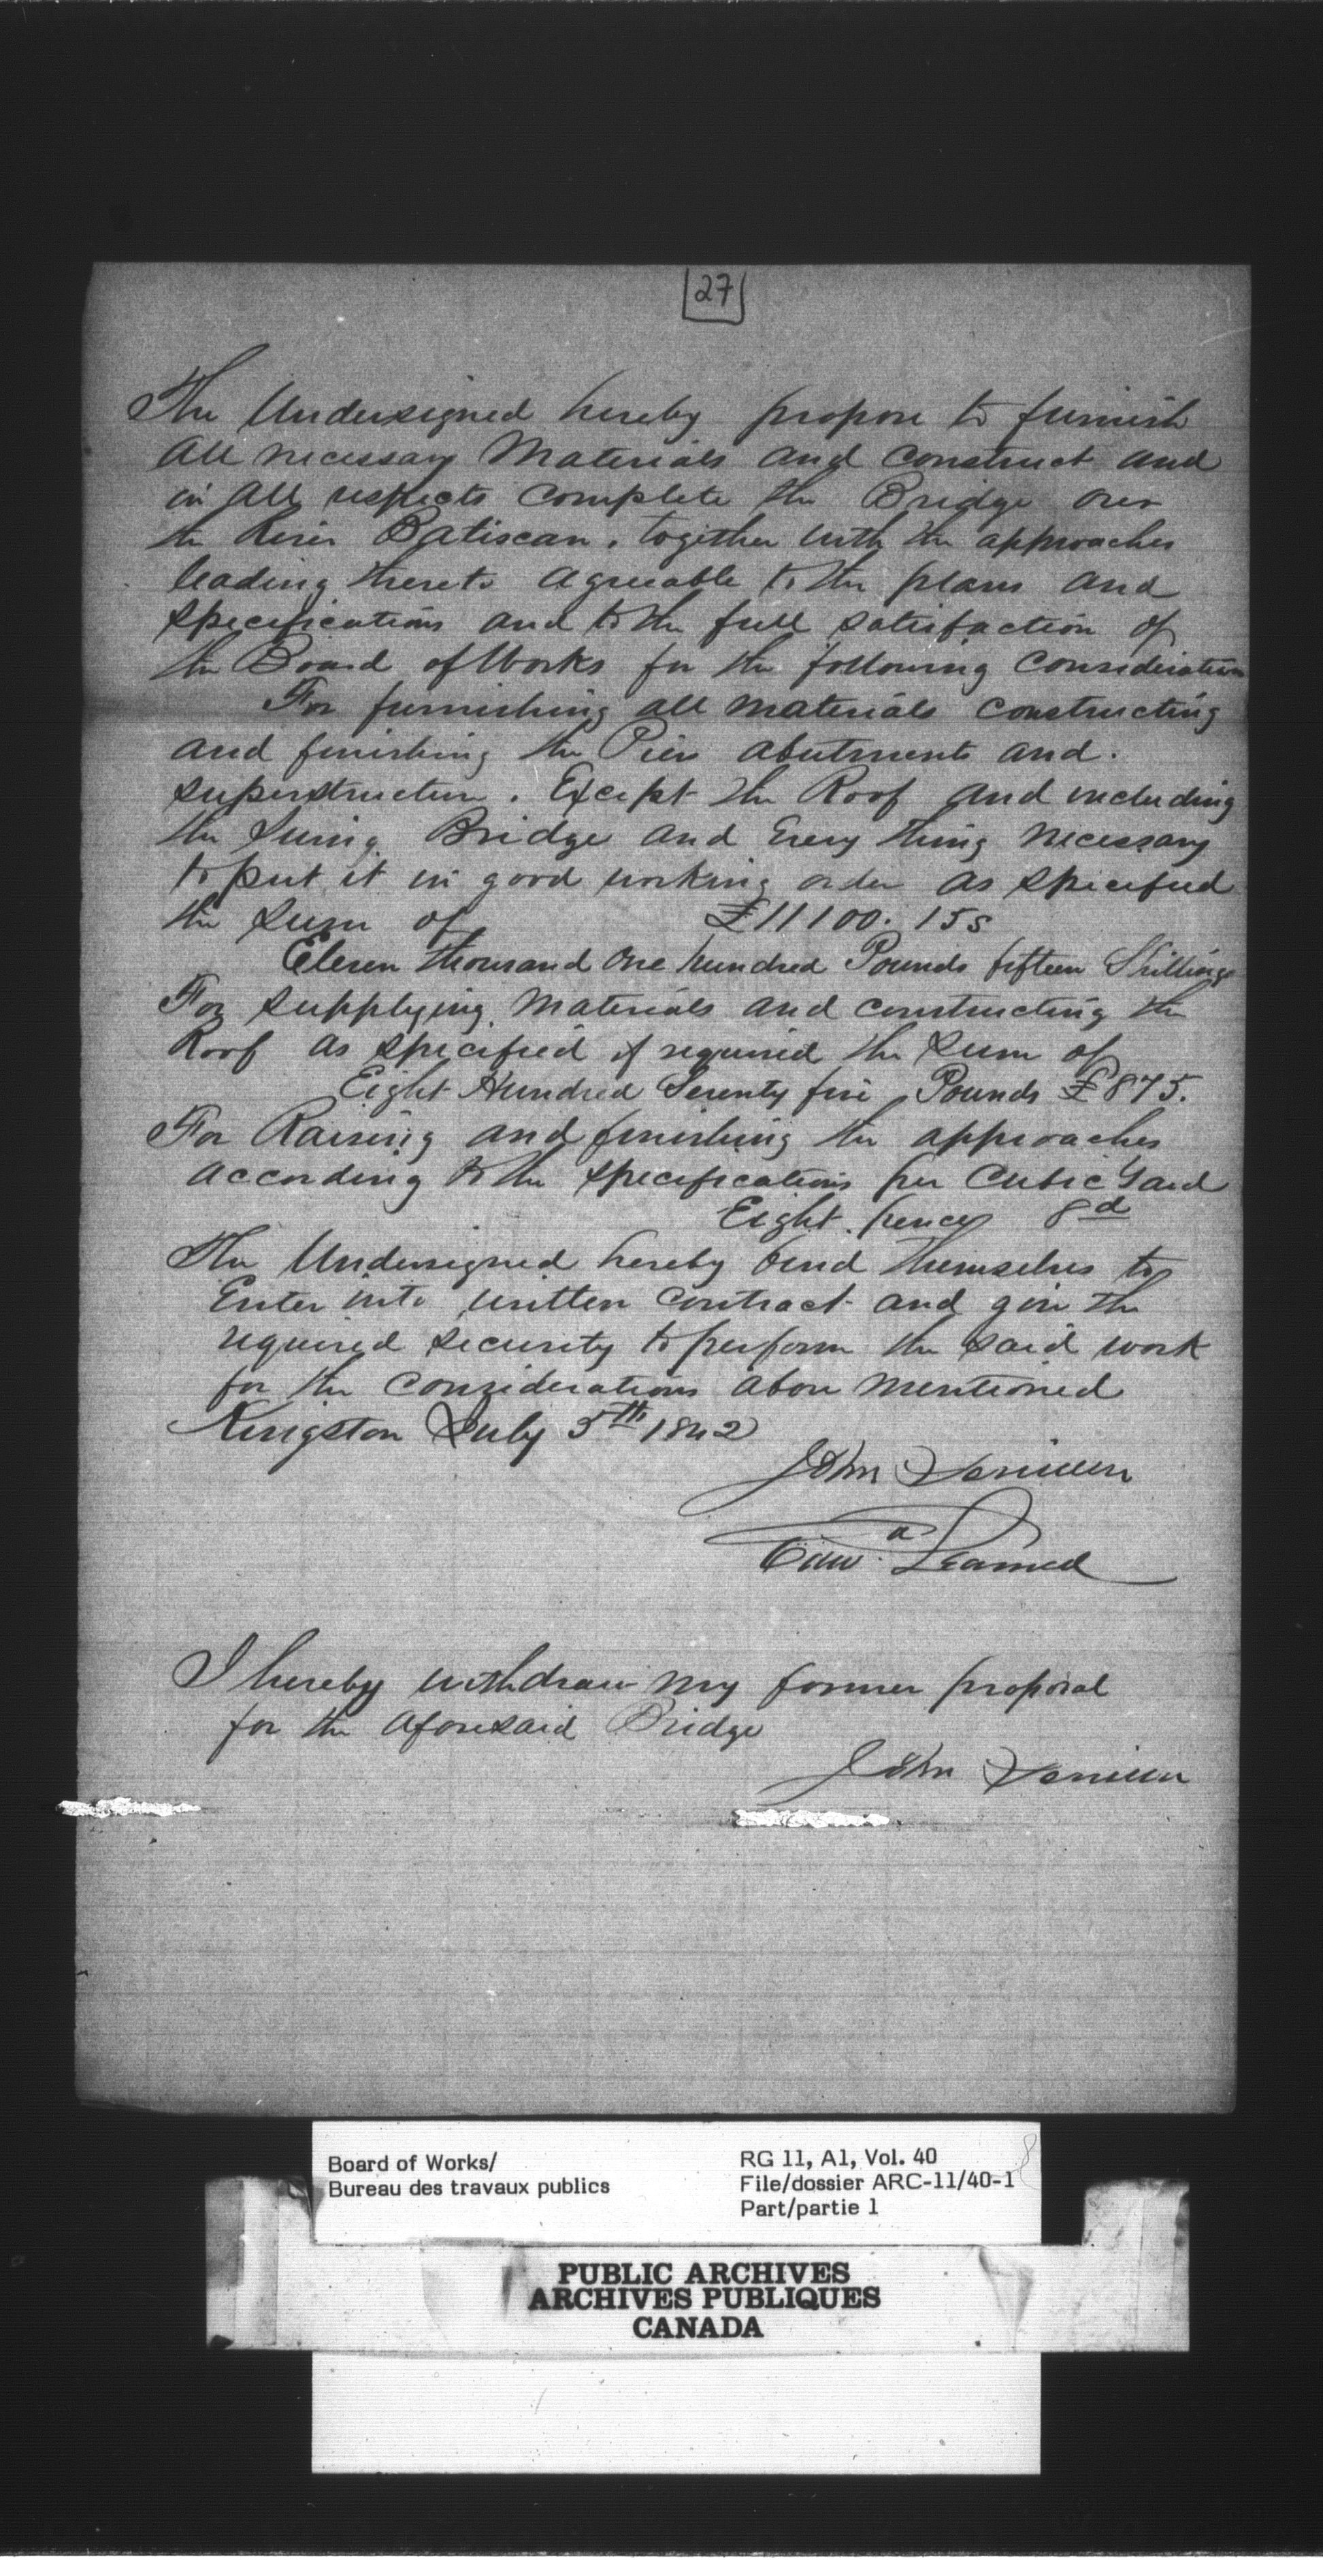 27
The Undersigned hereby propose to furnish
all necessary Materials and Construct and
in all respects Complete the Bridge over
the River Batiscan. together with the approaches
leading thereto agreeable to the plans and
specifications and to the full satisfaction of
the Board of Works for the following Consideration
For furnishing all materials constructing
and finishing the Piers abutments and.
superstructure. Except the Roof and including
the Swing Bridge and Every thing necessary
to put it in good working order as specified
the sum of £11100. 15s
Eleven thousand One hundred Pounds fifteen Shillings
For supplying Materials and constructing the
Roof as specified if required the sum of
Eight Hundred Seventy five Pounds £875.
For Raising and finishing the approaches
according to the specifications per Cubic Yard
Eight pence 8d
The Undersigned hereby bind themselves to
Enter into written Contract and give the
required security to perform the said work
for the Considerations above mentioned
Kingston July 5th 1842
John
Edwd Learned
I hereby withdraw my former proposal
for the aforesaid Bridge
John
Board of Works/
Bureau des travaux publics
RG 11, A1, Vol. 40
File/dossier ARC-11/40-1
Part/partie 1
PUBLIC ARCHIVES
ARCHIVES PUBLIQUES
CANADA